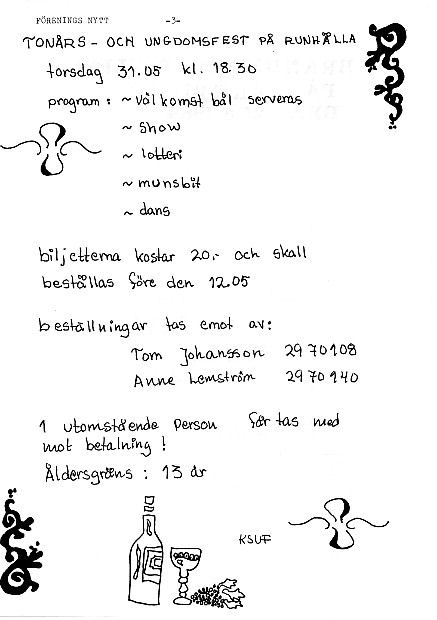 FÖRENINGS NYTT -3-
TONÅRS - OCH UNGDOMSFEST PÅ RUNHÄLLA
torsdag 31.05 kl. 18.30
program : ~ välkomst bål serveras
~ show
~ lotteri
~ munsbit
~ dans
biljetterna kostar 20.- och skall
beställas före den 12.05
beställningar tas emot av:
Tom Johansson 2970108
Anne Lemström 2970140
1 utomstående person får tas med
mot betalning !
Åldersgräns : 13 år
KSUF